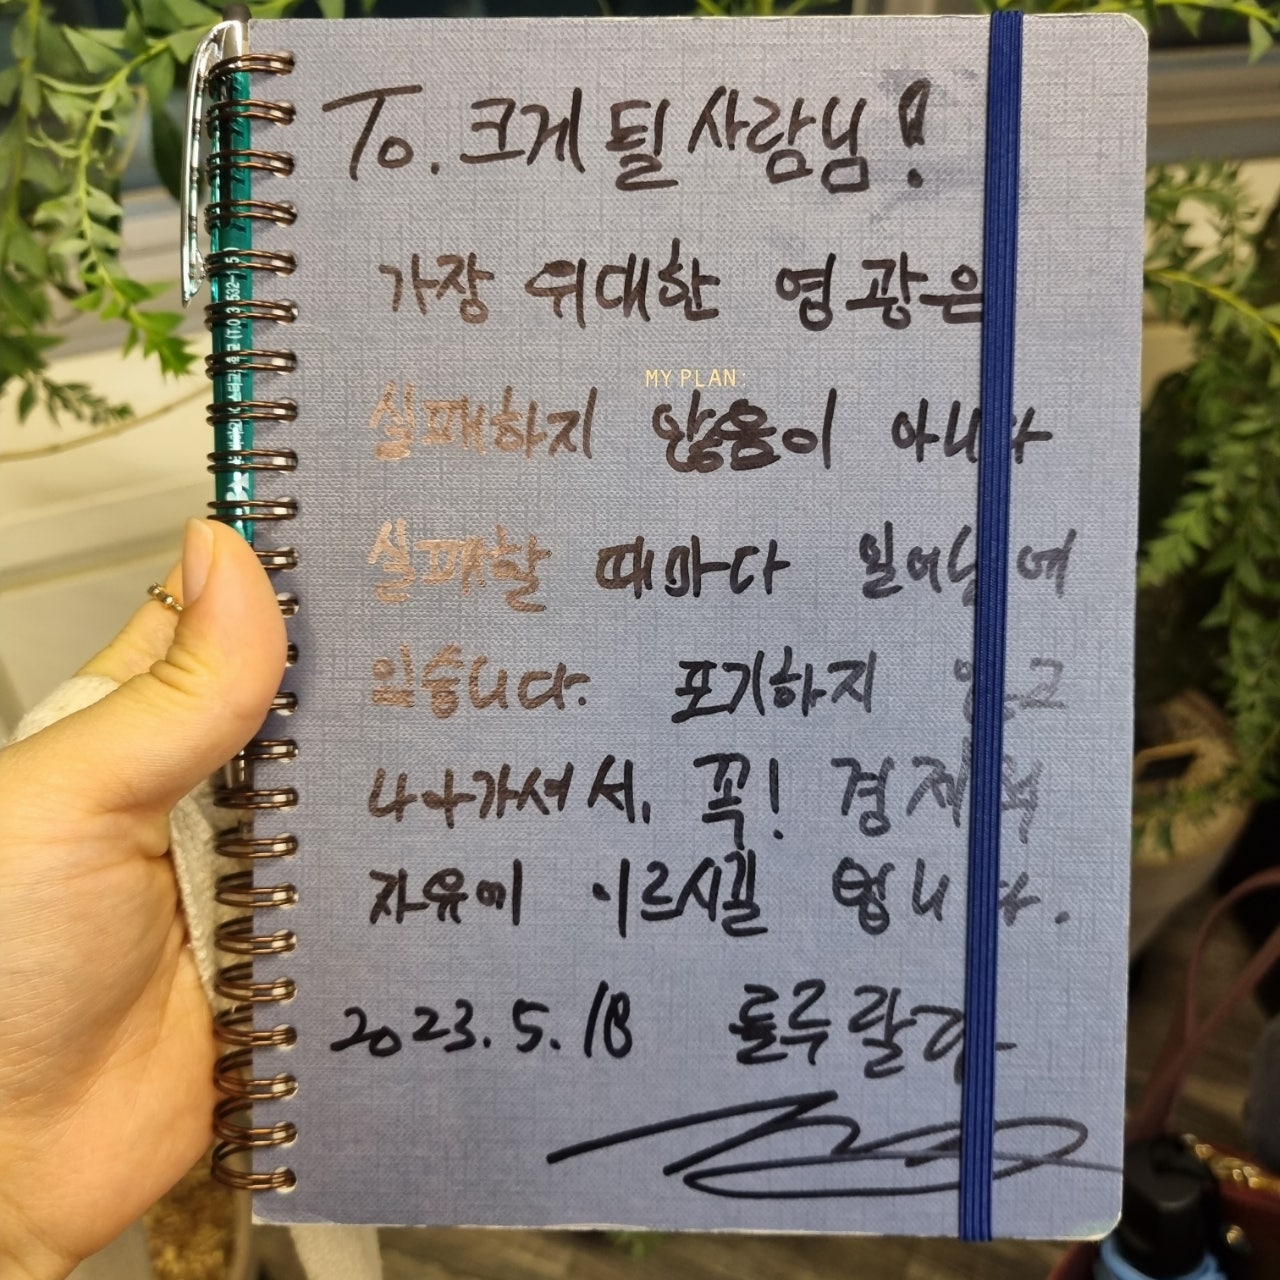 To. 크게 될 사람님!
가장 위대한 영광은
MY PLAN:
실패하지 않음이 아니라
실패할 때마다 일어남에
있습니다. 포기하지 않고
나아가셔서, 꼭! 경제적
자유에 이르시길 빕니다.
2023.5.18